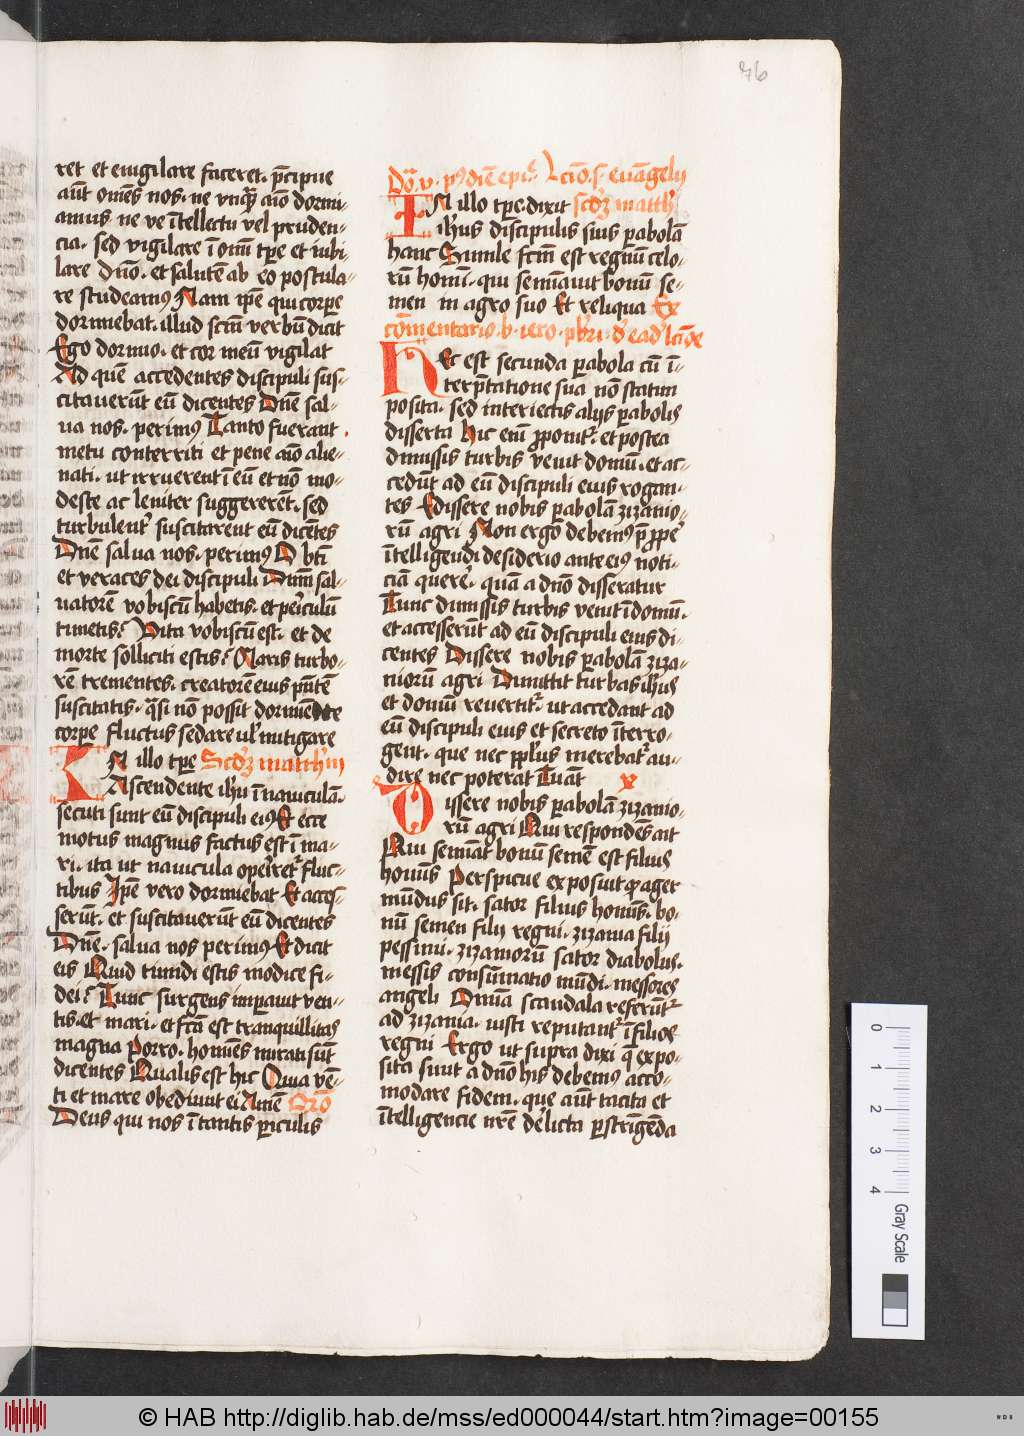 76
ret et euigilare faceret. p̄cipue
aūt om̄es nos. ne vnq̄ȝ aīo dormi
amus ne ve ītellectu vel pruden-
cia. sed vigilare ī om̄i tꝑe et iubi
lare dn̄o. et salutem̄ ab eo postula-
re studeamꝰ Nam ip̄e qui corꝑe
dormiebat. illud scīm verbū dicit
Ego dormio. et cor meū vigilat
Ad quē accedentes discipuli sus-
citauerūt eū dicentes Dn̄e sal-
ua nos. perimꝰ Tanto fuerant
metu conterriti et pene aīo alie-
nati. ut irruerent ī eū et nō mo-
deste ac leniter suggererēt. sed
turbulent̓ suscitarent eū dicētes
Dn̄e salua nos. perimꝰ O bt̄i
et veraces dei discipuli Dn̄m sal-
uatorē vobiscū habetis. et pericułū
timetis? Vita vobiscū est. et de
morte solliciti estis? Maris turbo-
rē trementes. creatorē eius pn̄tē
suscitatis. q̄si nō possit dormiente
corꝑe fluctus sedare ul̓ mitigare
IN illo tꝑe Scd̓ȝ matth̓m
Ascendente ih̓u ī nauiculā.
secuti sunt eū discipuli eiꝰ Et ecce
motus magnus factus est ī ma-
ri. ita ut nauicula operiret̓ fluc-
tibus Ip̄e vero dormiebat Et acces-
serūt. et suscitauerūt eū dicentes
Dn̄e. salua nos perimꝰ Et dicit
eis Quid timidi estis modice fi-
dei? Tunc surgens imꝑauit ven-
tis. et mari. et fcā est tranquillitas
magna Porro. homīes mirati sūt
dicentes Qualis est hic Quia vē-
ti et mare obediunt ei Amē Orō
Deus qui nos ī tantis ꝑiculis
Dō. v. pꝰ diē epi. Lcīo. s. euāgelij
IN illo tꝑe. dixit scd̓ȝ matth̓
ih̓us discipulis suis ꝑabolā
hanc Simile fcm̄ est regnū celo-
rū homī. qui seminauit bonū se-
men in agro suo Et reliqua Ex
cōmentario b. iero. pb̓ri. d̓ ead̓ lcīoē
HEc est secunda ꝑabola cū ī-
terp̄tatione sua nō statim
posita. sed interiectis alijs ꝑabolis
disserta Hic enī ꝓponit̓. et postea
dimissis turbis venit domū. et ac-
cedūt ad eū discipuli eius rogan-
tes Edissere nobis ꝑabolā zizanio-
rū agri Non ergo debemꝰ p̄ꝓꝑe
ītelligendi desiderio ante eiꝰ noti-
ciā querer̓. quā a dn̄o disseratur
Tunc dimissis turbis venit ī domū.
et accesserūt ad eū discipuli eius di-
centes Dissere nobis ꝑabolā ziza-
niorū agri Dimittit turbas ih̓us
et domū reuertit̓. ut accedant ad
eū discipuli eius et secreto īterro-
gent. que nec pp̄l̓us merebat̓ au-
dire nec poterat Tuāt x
Dissere nobis ꝑabolā zizanio-
rū agri Qui respondēs ait
Qui semīat bonū semē est filius
homīs Perspicue exposuit qd̓ ager
mūdus sit. sator filius homīs. bo-
nū semen filij regni. zizania filij
pessimi. zizaniorū sator diabolus.
messis consūmatio mūdi. messores
angeli Omīa scandala referūt̓
ad zizania. iusti reputant̓ ī filios
regni Ergo ut supra dixi q̄ expo-
sita sunt a dn̄o his debemꝰ acco-
modare fidem. que aūt tacita et
ītelligencie nr̄e d̓elicta ꝑstringēda
0 1 2 3 4
Gray Scale
© HAB http://diglib.hab.de/mss/ed000044/start.htm?image=00155